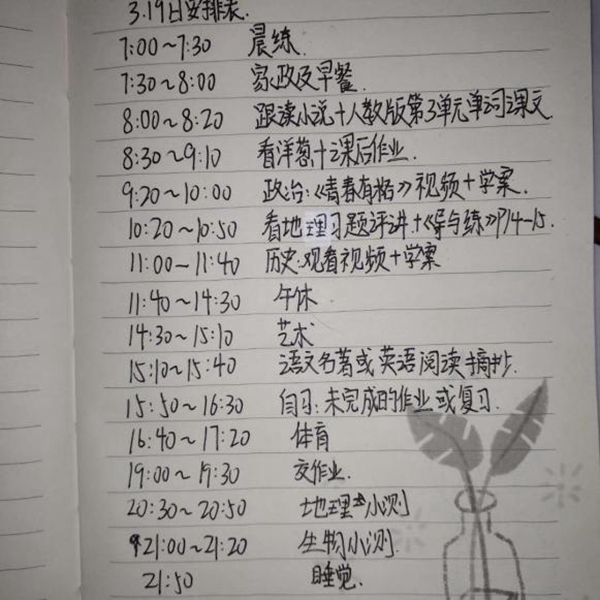 3.19日安排表.
7:00~7:30 晨练
7:30~8:00 家政及早餐.
8:00~8:20 跟读小说+人教版第3单元单词课文
8:30~9:10 看洋葱+课后作业.
9:20~10:00 政治:《青春有格》视频+学案.
10:20~10:50 看地理习题评讲+《导与练》P14-15.
11:00—11:40 历史:观看视频+学案
11:40~14:30 午休
14:30~15:10 艺术
15:10~15:40 语文名著或英语阅读摘抄.
15:50~16:30 自习:未完成的作业或复习.
16:40~17:20 体育
19:00~19:30 交作业.
20:30~20:50 地理小测
21:00~21:20 生物小测.
21:50 睡觉.